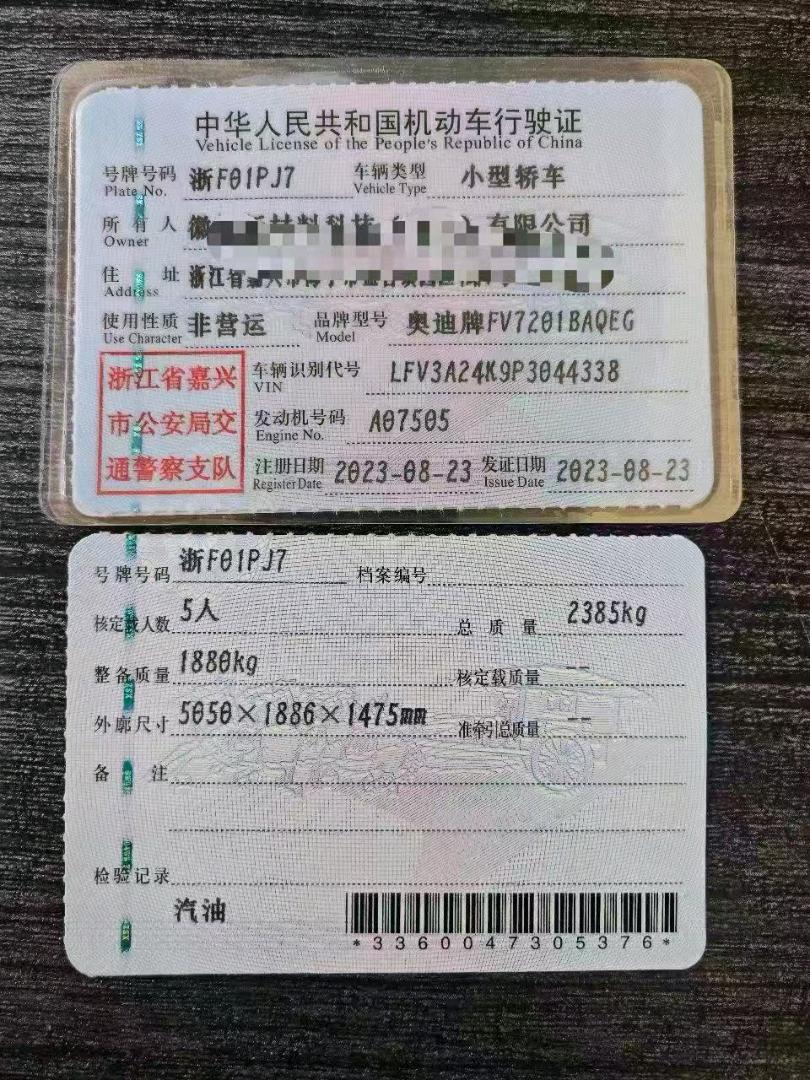 中华人民共和国机动车行驶证
Vehicle License of the People's Republic of China
号牌号码 浙F01PJ7 车辆类型 小型轿车
Plate No. Vehicle Type
所有人 有限公司
Owner
住址 浙江省
Address
使用性质 非营运 品牌型号 奥迪牌FV7201BAQEG
Use Character Model
浙江省嘉兴
市公安局交
通警察支队
车辆识别代号 LFV3A24K9P3044338
VIN
发动机号码 A07505
Engine No.
注册日期 2023-08-23 发证日期 2023-08-23
Register Date Issue Date
号牌号码 浙F01PJ7 档案编号
核定载人数 5人 总质量 2385kg
整备质量 1880kg 核定载质量 --
外廓尺寸 5050×1886×1475mm 准牵引总质量 --
备注
检验记录
汽油
*3360047305376*